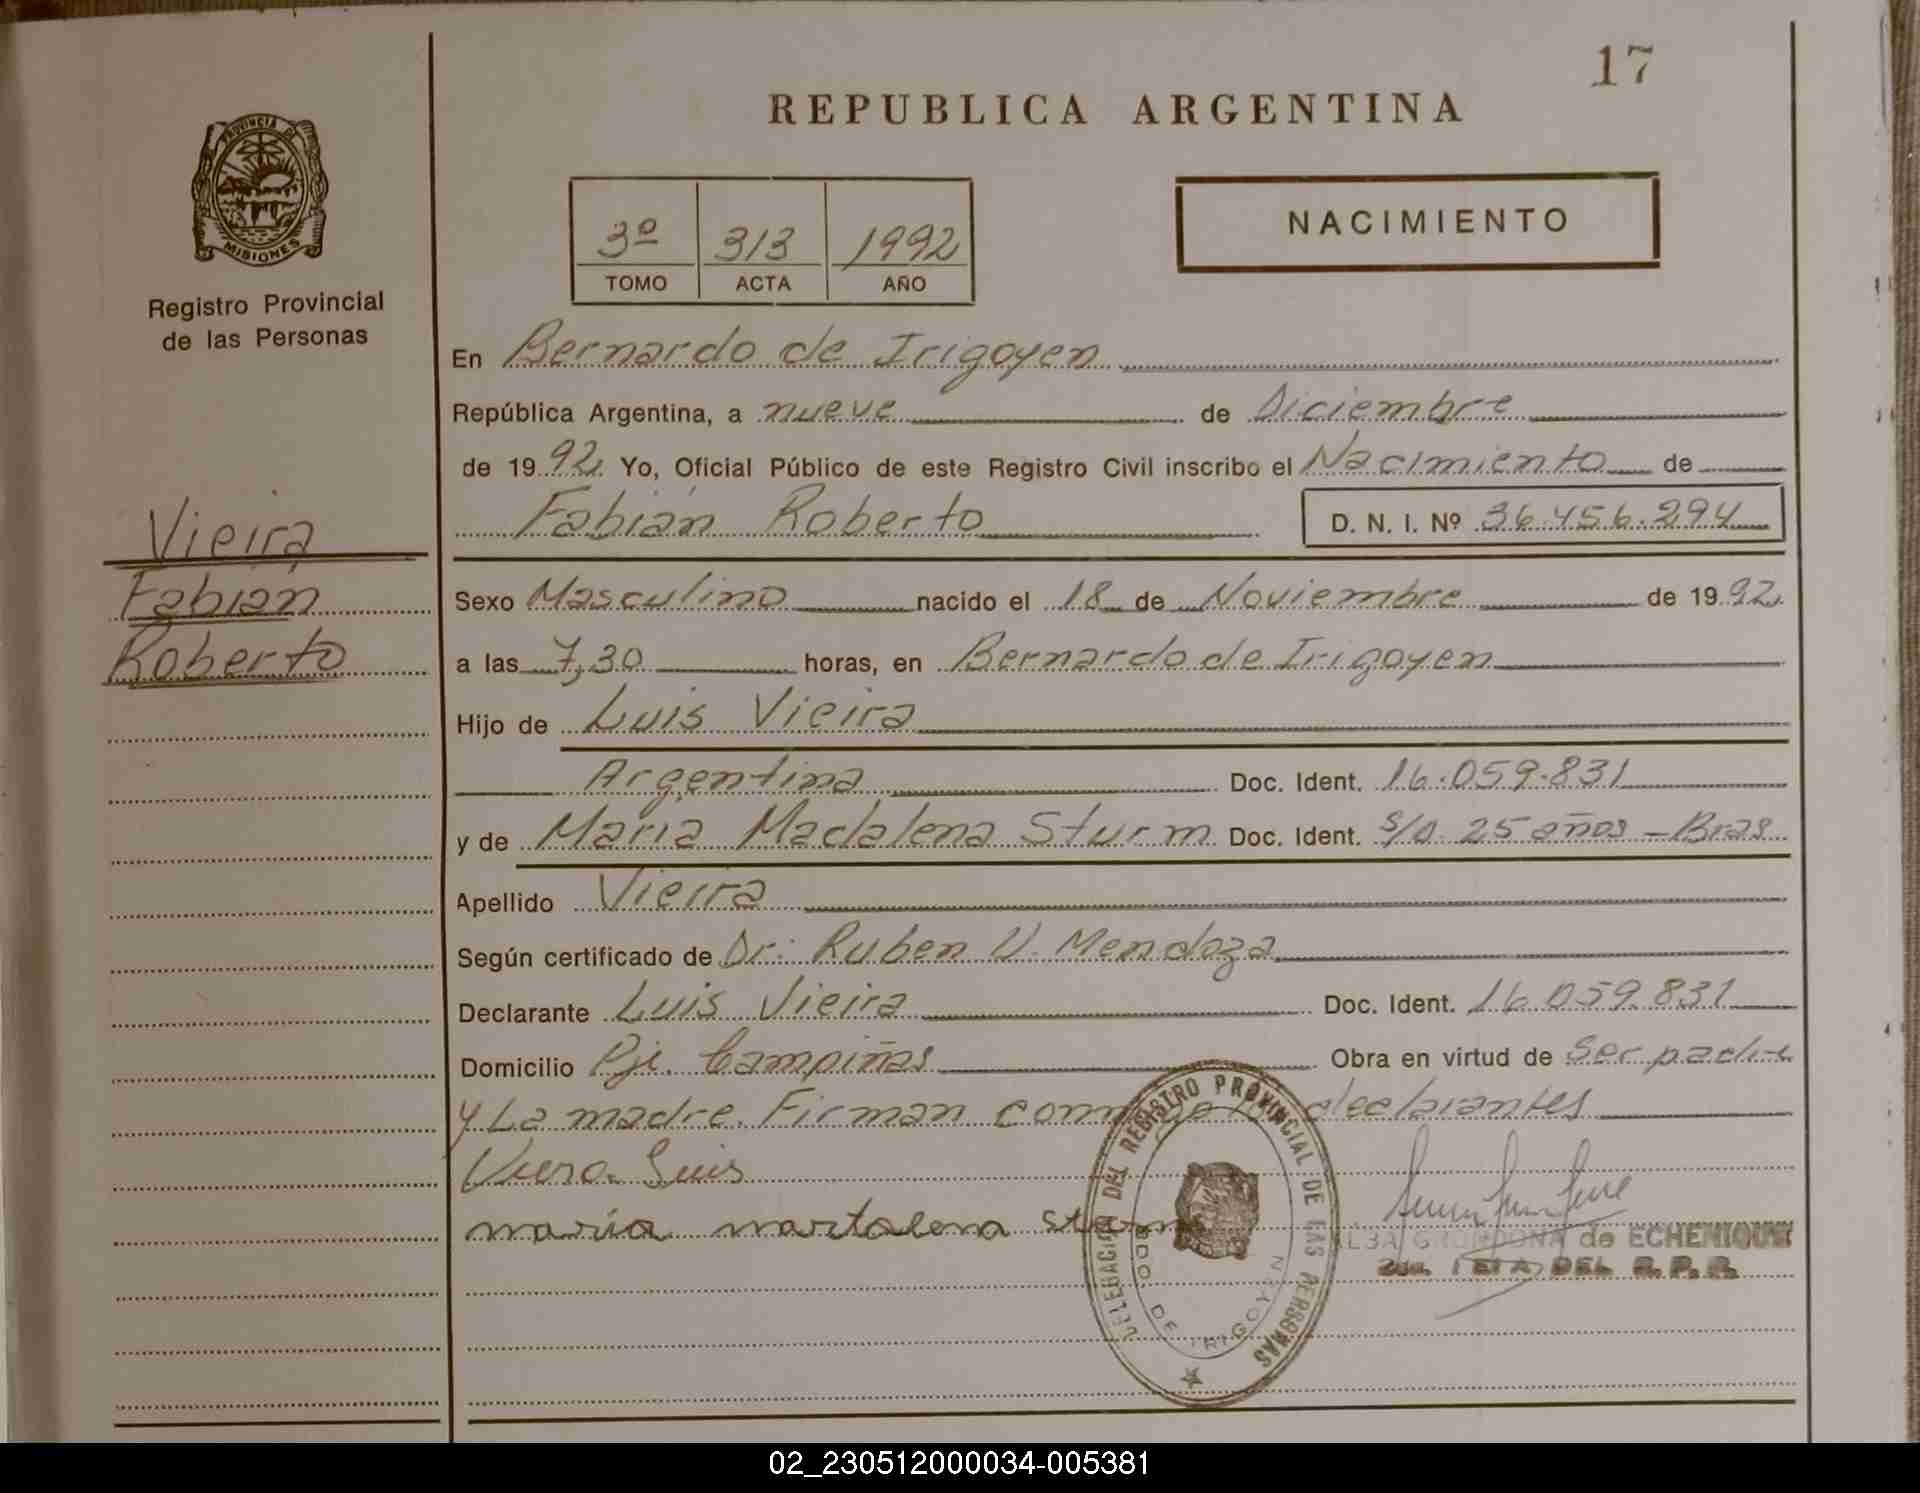 17
REPUBLICA ARGENTINA
PROVINCIA DE
MISIONES
Registro Provincial
de las Personas
3º 313 1992
TOMO ACTA AÑO
NACIMIENTO
En Bernardo de Irigoyen
República Argentina, a nueve de Diciembre
de 1992 Yo, Oficial Público de este Registro Civil inscribo el Nacimiento de
Fabián Roberto D. N. I. Nº 36.456.294
Vieira
Fabián
Roberto
Sexo Masculino nacido el 18 de Noviembre de 1992
a las 7,30 horas, en Bernardo de Irigoyen
Hijo de Luis Vieira
Argentina Doc. Ident. 16.059.831
y de María Madalena Sturm Doc. Ident. s/d. 25 años - Bras
Apellido Vieira
Según certificado de Dr. Ruben V. Mendoza
Declarante Luis Vieira Doc. Ident. 16.059.831
Domicilio Pje. Campiñas Obra en virtud de ser padre
y La madre. Firman declarantes
Luis
maria martalena
DELEGACION DEL REGISTRO PROVINCIAL DE LAS PERSONAS
BDO DE IRIGOYEN
de ECHENIQUE
DEL R.P.P.
02_230512000034-005381